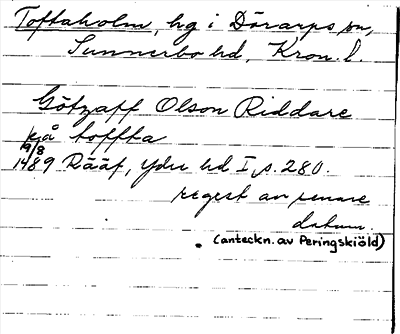 Toftaholm, hg i Dörarps sn,
Sunnerbo hd, Kron. l.
Götzaff Olson Riddare
på toffta
9/8
1489 Rääf, Ydre hd I, s. 280.
regest av senare
datum.
(anteckn. av Peringskiöld)